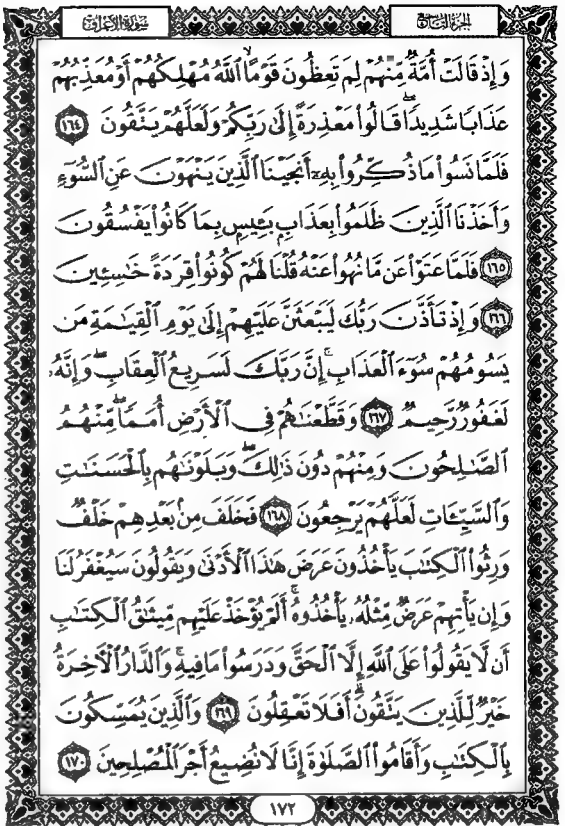 الجزء التاسع
سورة الأعراف
وَإِذْ قَالَتْ أُمَّةٌ مِّنْهُمْ لِمَ تَعِظُونَ قَوْمًا ۙ اللَّهُ مُهْلِكُهُمْ أَوْ مُعَذِّبُهُمْ
عَذَابًا شَدِيدًا ۖ قَالُوا مَعْذِرَةً إِلَىٰ رَبِّكُمْ وَلَعَلَّهُمْ يَتَّقُونَ ١٦٤
فَلَمَّا نَسُوا مَا ذُكِّرُوا بِهِ أَنجَيْنَا الَّذِينَ يَنْهَوْنَ عَنِ السُّوءِ
وَأَخَذْنَا الَّذِينَ ظَلَمُوا بِعَذَابٍ بَئِيسٍ بِمَا كَانُوا يَفْسُقُونَ
١٦٥ فَلَمَّا عَتَوْا عَن مَّا نُهُوا عَنْهُ قُلْنَا لَهُمْ كُونُوا قِرَدَةً خَاسِئِينَ
١٦٦ وَإِذْ تَأَذَّنَ رَبُّكَ لَيَبْعَثَنَّ عَلَيْهِمْ إِلَىٰ يَوْمِ الْقِيَامَةِ مَن
يَسُومُهُمْ سُوءَ الْعَذَابِ ۗ إِنَّ رَبَّكَ لَسَرِيعُ الْعِقَابِ ۖ وَإِنَّهُ
لَغَفُورٌ رَّحِيمٌ ١٦٧ وَقَطَّعْنَاهُمْ فِي الْأَرْضِ أُمَمًا ۖ مِّنْهُمُ
الصَّالِحُونَ وَمِنْهُمْ دُونَ ذَٰلِكَ ۖ وَبَلَوْنَاهُم بِالْحَسَنَاتِ
وَالسَّيِّئَاتِ لَعَلَّهُمْ يَرْجِعُونَ ١٦٨ فَخَلَفَ مِن بَعْدِهِمْ خَلْفٌ
وَرِثُوا الْكِتَابَ يَأْخُذُونَ عَرَضَ هَٰذَا الْأَدْنَىٰ وَيَقُولُونَ سَيُغْفَرُ لَنَا
وَإِن يَأْتِهِمْ عَرَضٌ مِّثْلُهُ يَأْخُذُوهُ ۚ أَلَمْ يُؤْخَذْ عَلَيْهِم مِّيثَاقُ الْكِتَابِ
أَن لَّا يَقُولُوا عَلَى اللَّهِ إِلَّا الْحَقَّ وَدَرَسُوا مَا فِيهِ ۗ وَالدَّارُ الْآخِرَةُ
خَيْرٌ لِّلَّذِينَ يَتَّقُونَ ۗ أَفَلَا تَعْقِلُونَ ١٦٩ وَالَّذِينَ يُمَسِّكُونَ
بِالْكِتَابِ وَأَقَامُوا الصَّلَاةَ إِنَّا لَا نُضِيعُ أَجْرَ الْمُصْلِحِينَ ١٧٠
١٧٢